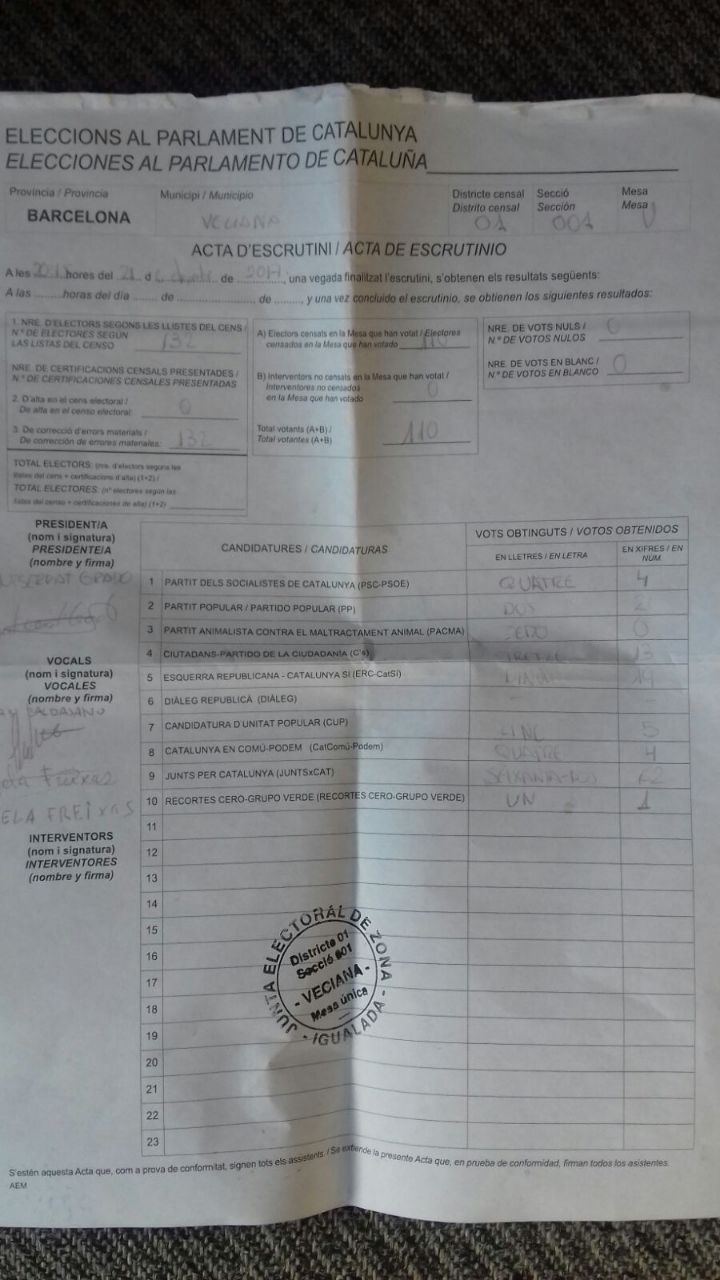 ELECCIONS AL PARLAMENT DE CATALUNYA
ELECCIONES AL PARLAMENTO DE CATALUÑA
Província / Provincia
Municipi / Municipio
Districte censal
Distrito censal
Secció
Sección
Mesa
Mesa
BARCELONA
VECIANA
01
001
U
ACTA D'ESCRUTINI / ACTA DE ESCRUTINIO
A les hores del 21 d de 2017, una vegada finalitzat l'escrutini, s'obtenen els resultats següents:
A las ........ horas del día ...... de ........................ de ........, y una vez concluido el escrutinio, se obtienen los siguientes resultados:
1. NRE. D'ELECTORS SEGONS LES LLISTES DEL CENS /
N.º DE ELECTORES SEGÚN
LAS LISTAS DEL CENSO 132
NRE. DE CERTIFICACIONS CENSALS PRESENTADES /
N.º DE CERTIFICACIONES CENSALES PRESENTADAS
2. D'alta en el cens electoral /
De alta en el censo electoral: 0
3. De correcció d'errors materials /
De corrección de errores materiales: 132
TOTAL ELECTORS: (nre. d'electors segons les
llistes del cens + certificacions d'alta) (1+2) /
TOTAL ELECTORES: (nº electores según las
listas del censo + certificaciones de alta) (1+2)
A) Electors censats en la Mesa que han votat / Electores
censados en la Mesa que han votado 110
B) Interventors no censats en la Mesa que han votat /
Interventores no censados
en la Mesa que han votado 0
Total votants (A+B) /
Total votantes (A+B) 110
NRE. DE VOTS NULS /
N.º DE VOTOS NULOS 0
NRE. DE VOTS EN BLANC /
N.º DE VOTOS EN BLANCO 0
PRESIDENT/A
(nom i signatura)
PRESIDENTE/A
(nombre y firma)
VOCALS
(nom i signatura)
VOCALES
(nombre y firma)
Freixas
ELA FREIXAS
INTERVENTORS
(nom i signatura)
INTERVENTORES
(nombre y firma)
CANDIDATURES / CANDIDATURAS
VOTS OBTINGUTS / VOTOS OBTENIDOS
EN LLETRES / EN LETRA
EN XIFRES / EN NÚM.
1 PARTIT DELS SOCIALISTES DE CATALUNYA (PSC-PSOE) QUATRE 4
2 PARTIT POPULAR / PARTIDO POPULAR (PP) DOS 2
3 PARTIT ANIMALISTA CONTRA EL MALTRACTAMENT ANIMAL (PACMA) ZERO 0
4 CIUTADANS-PARTIDO DE LA CIUDADANÍA (C's) TRETZE 13
5 ESQUERRA REPUBLICANA - CATALUNYA SÍ (ERC-CatSí) 19
6 DIÀLEG REPUBLICÀ (DIÀLEG)
7 CANDIDATURA D'UNITAT POPULAR (CUP) CINC 5
8 CATALUNYA EN COMÚ-PODEM (CatComú-Podem) QUATRE 4
9 JUNTS PER CATALUNYA (JUNTSxCAT) SEIXANTA-DOS 62
10 RECORTES CERO-GRUPO VERDE (RECORTES CERO-GRUPO VERDE) UN 1
11
12
13
14
15
16
17
18
19
20
21
22
23
JUNTA ELECTORAL DE ZONA
Districte 01
Secció 001
- VECIANA -
Mesa única
- IGUALADA -
S'estén aquesta Acta que, com a prova de conformitat, signen tots els assistents. / Se extiende la presente Acta que, en prueba de conformidad, firman todos los asistentes.
AEM